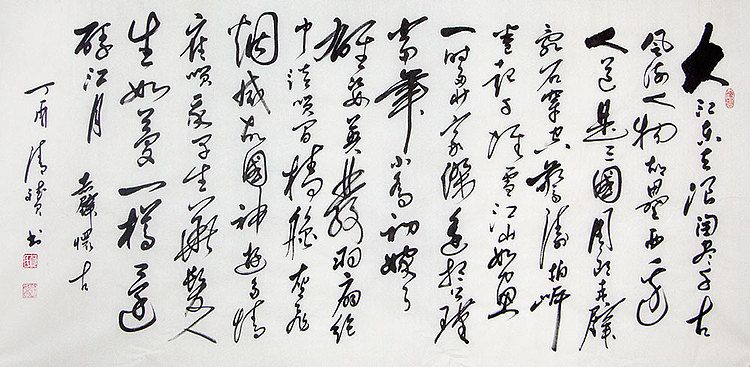 大江东去浪淘尽千古
风流人物故垒西边
人道是三國周郎赤壁
乱石穿空惊涛拍岸
卷起千堆雪江山如画
一时多少豪傑遥想公瑾
当年小乔初嫁了
雄姿英发羽扇纶
巾谈笑间樯橹灰飞
烟灭故國神游多情
应笑我早生华髮人
生如夢一樽还
酹江月 赤壁怀古
丁亥清书